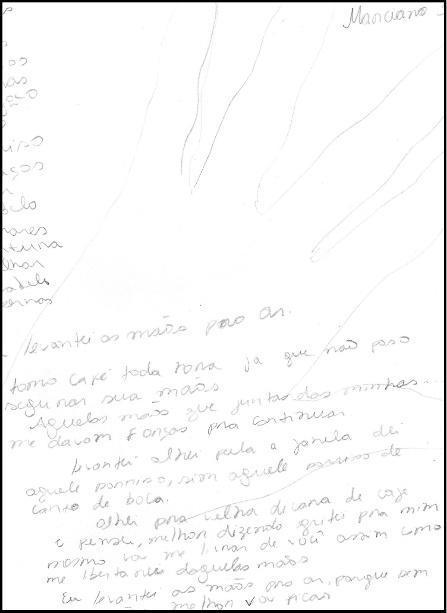 Marciano
s
os
nas
ção
uiso
aços
n
belo
nares
ntura
lhar
abelo
ernas
levantei as mãos pro ar.
tomo café toda hora ja que não poso
segurar sua mãos
Aquelas mãos que juntas das minhas
me davam forças pra continuar
levantei olhei pela a janela dei
aquele sorriso, sim aquele sorriso de
canto de boca.
olhei pra velha de cafe
e pensei, melhor dizendo gritei pra mim
mesmo vai me livrar de você assim como
me libertarei daquelas mãos
Eu levantei as mãos pro ar, porque sem
melhor vai ficar